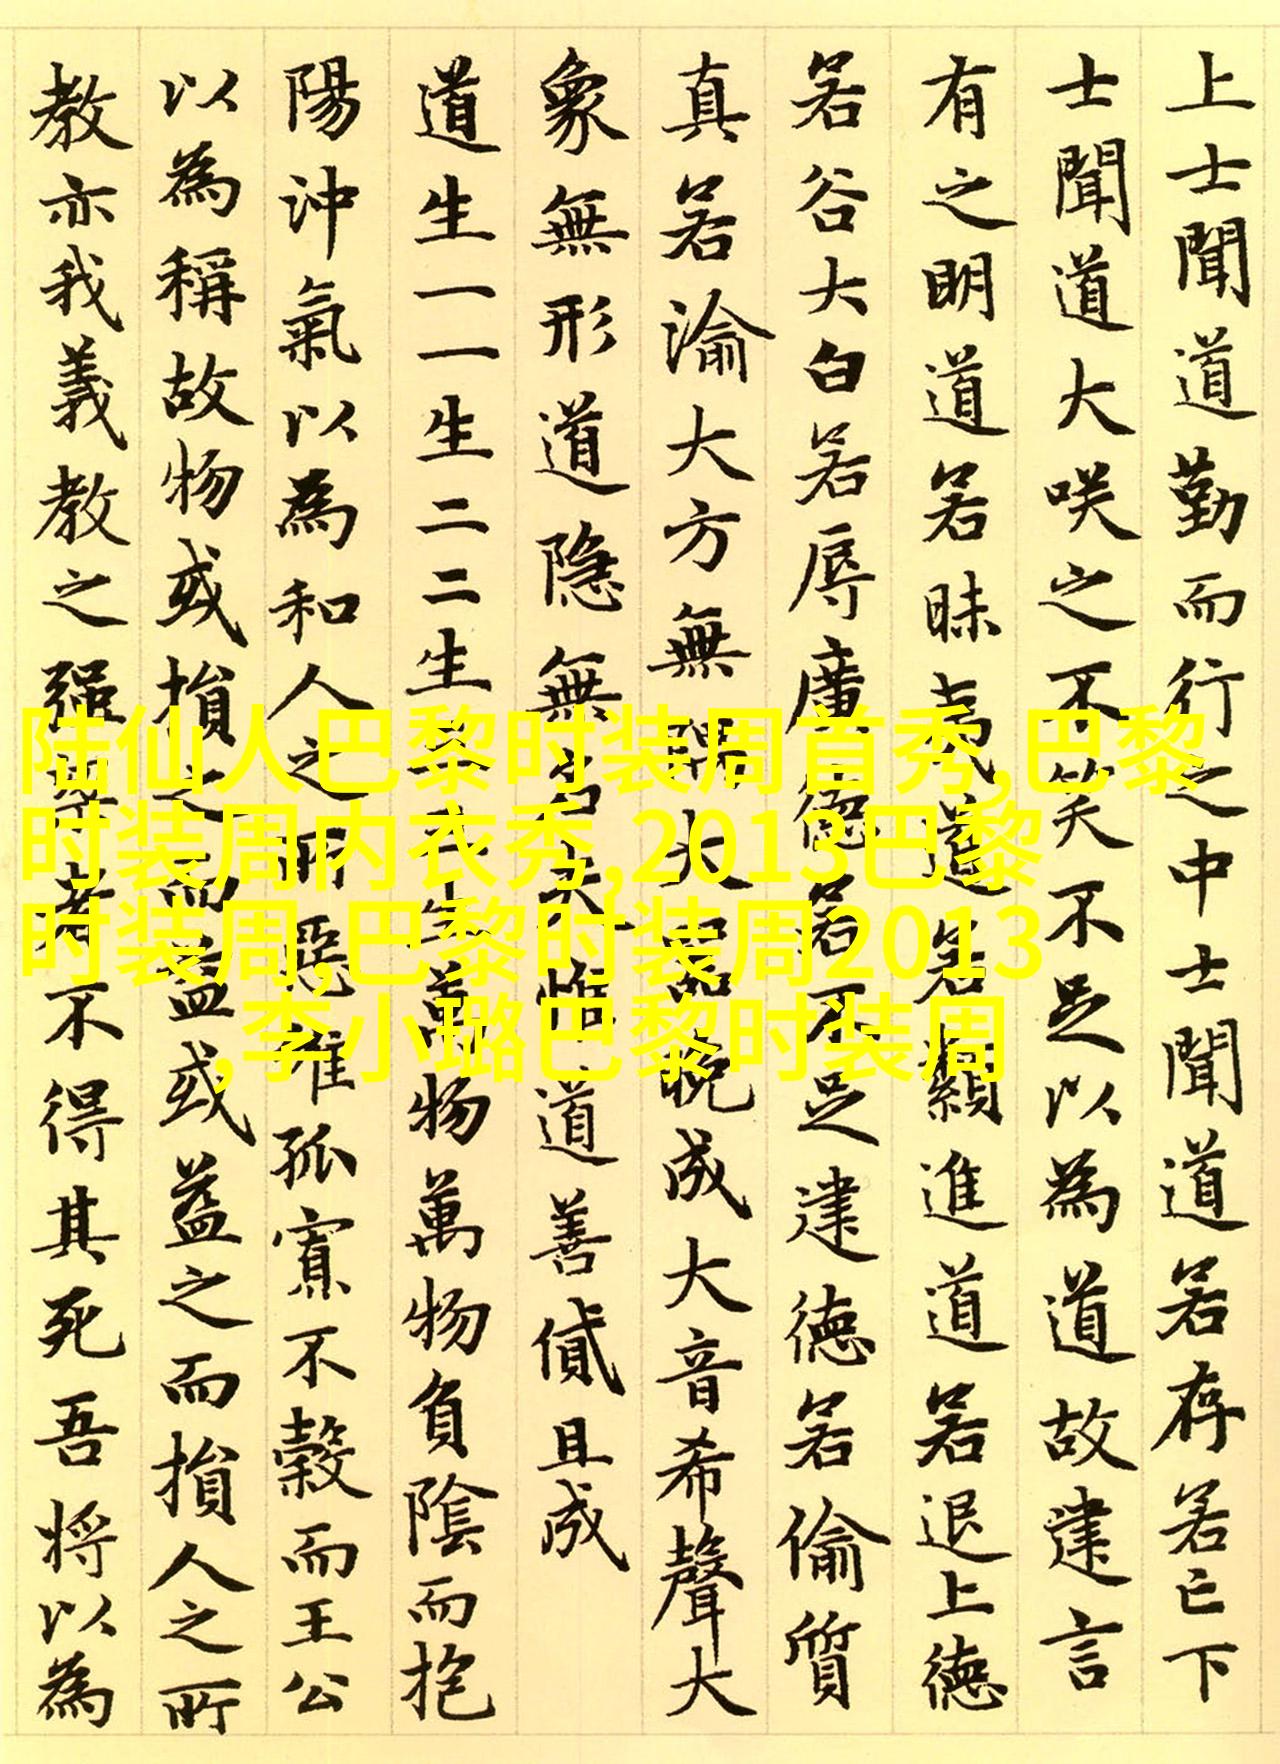 上士聞道勤而行之中士聞道若存若亡下
士聞道大咲之不笑不足以為道故建言
有之明道若昧夷道若纇進道若退上德
若谷大白若辱廣德若不足建德若偷質
真若渝大方無隅大器晚成大音希聲大
象無形道隐無名夫惟道善貸且成
道生一一生二二生三三生萬物萬物負陰而抱
陽沖氣以為和人之所惡惟孤寡不穀而王公
以為稱故物或損之而益或益之而損人之所
教亦我義教之强梁者不得其死吾将以為
陆仙人巴黎时装周首秀,巴黎
时装周内衣秀,2013巴黎
时装周,巴黎时装周2013
,李小璐巴黎时装周